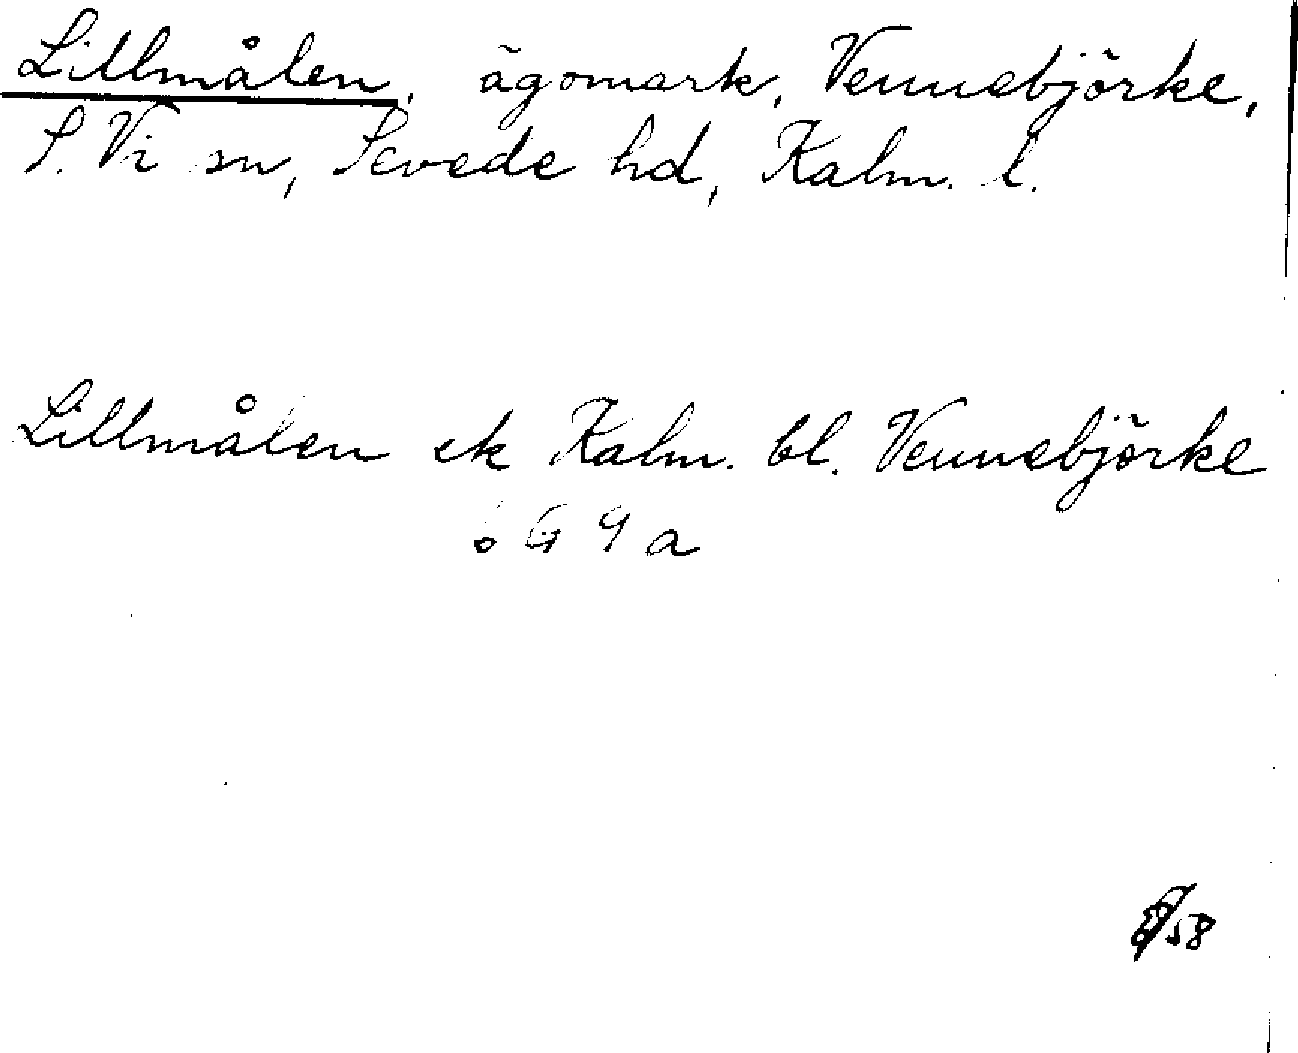 Lillmålen, ägomark, Vennebjörke,
S. Vi sn, Sevede hd, Kalm. l.
Lillmålen ek Kalm. bl. Vennebjörke
6 G 9 a
/58